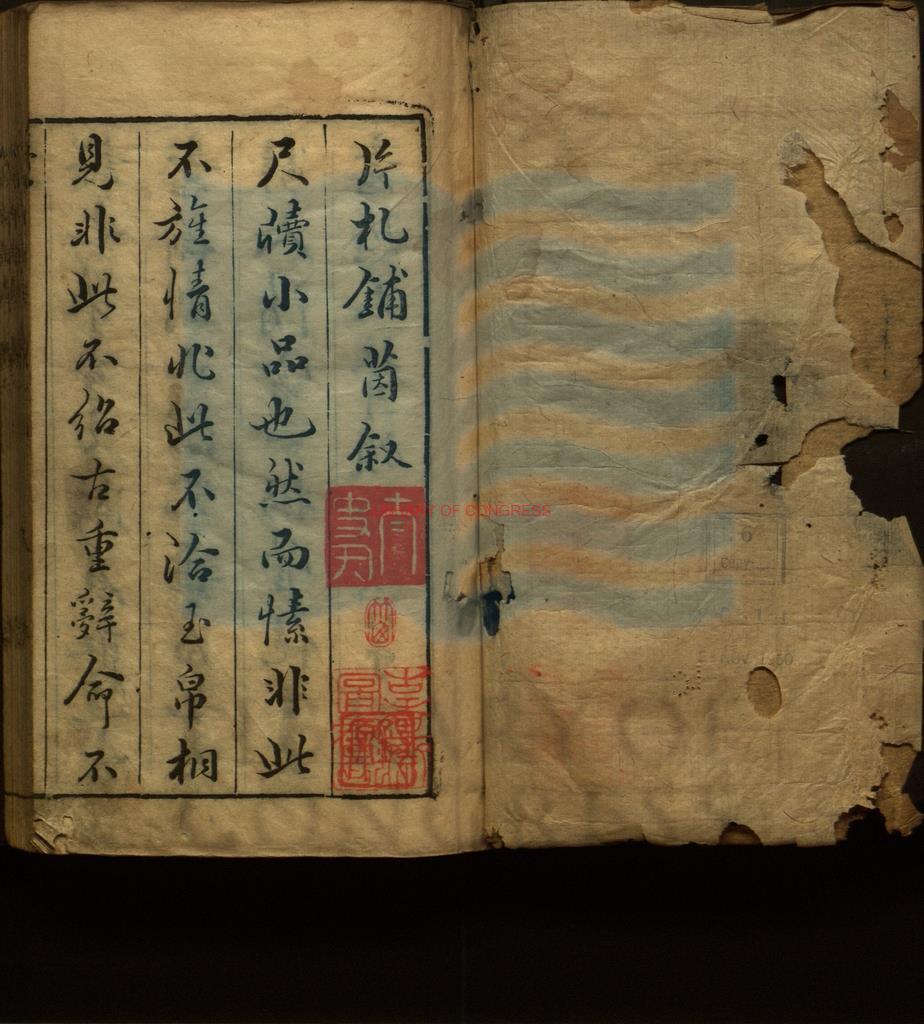 片札鋪茵叙
尺牘小品也然而愫非此
不旌情非此不洽玉帛相
見非此不紹古重辭命不
LIBRARY OF CONGRESS
Copy